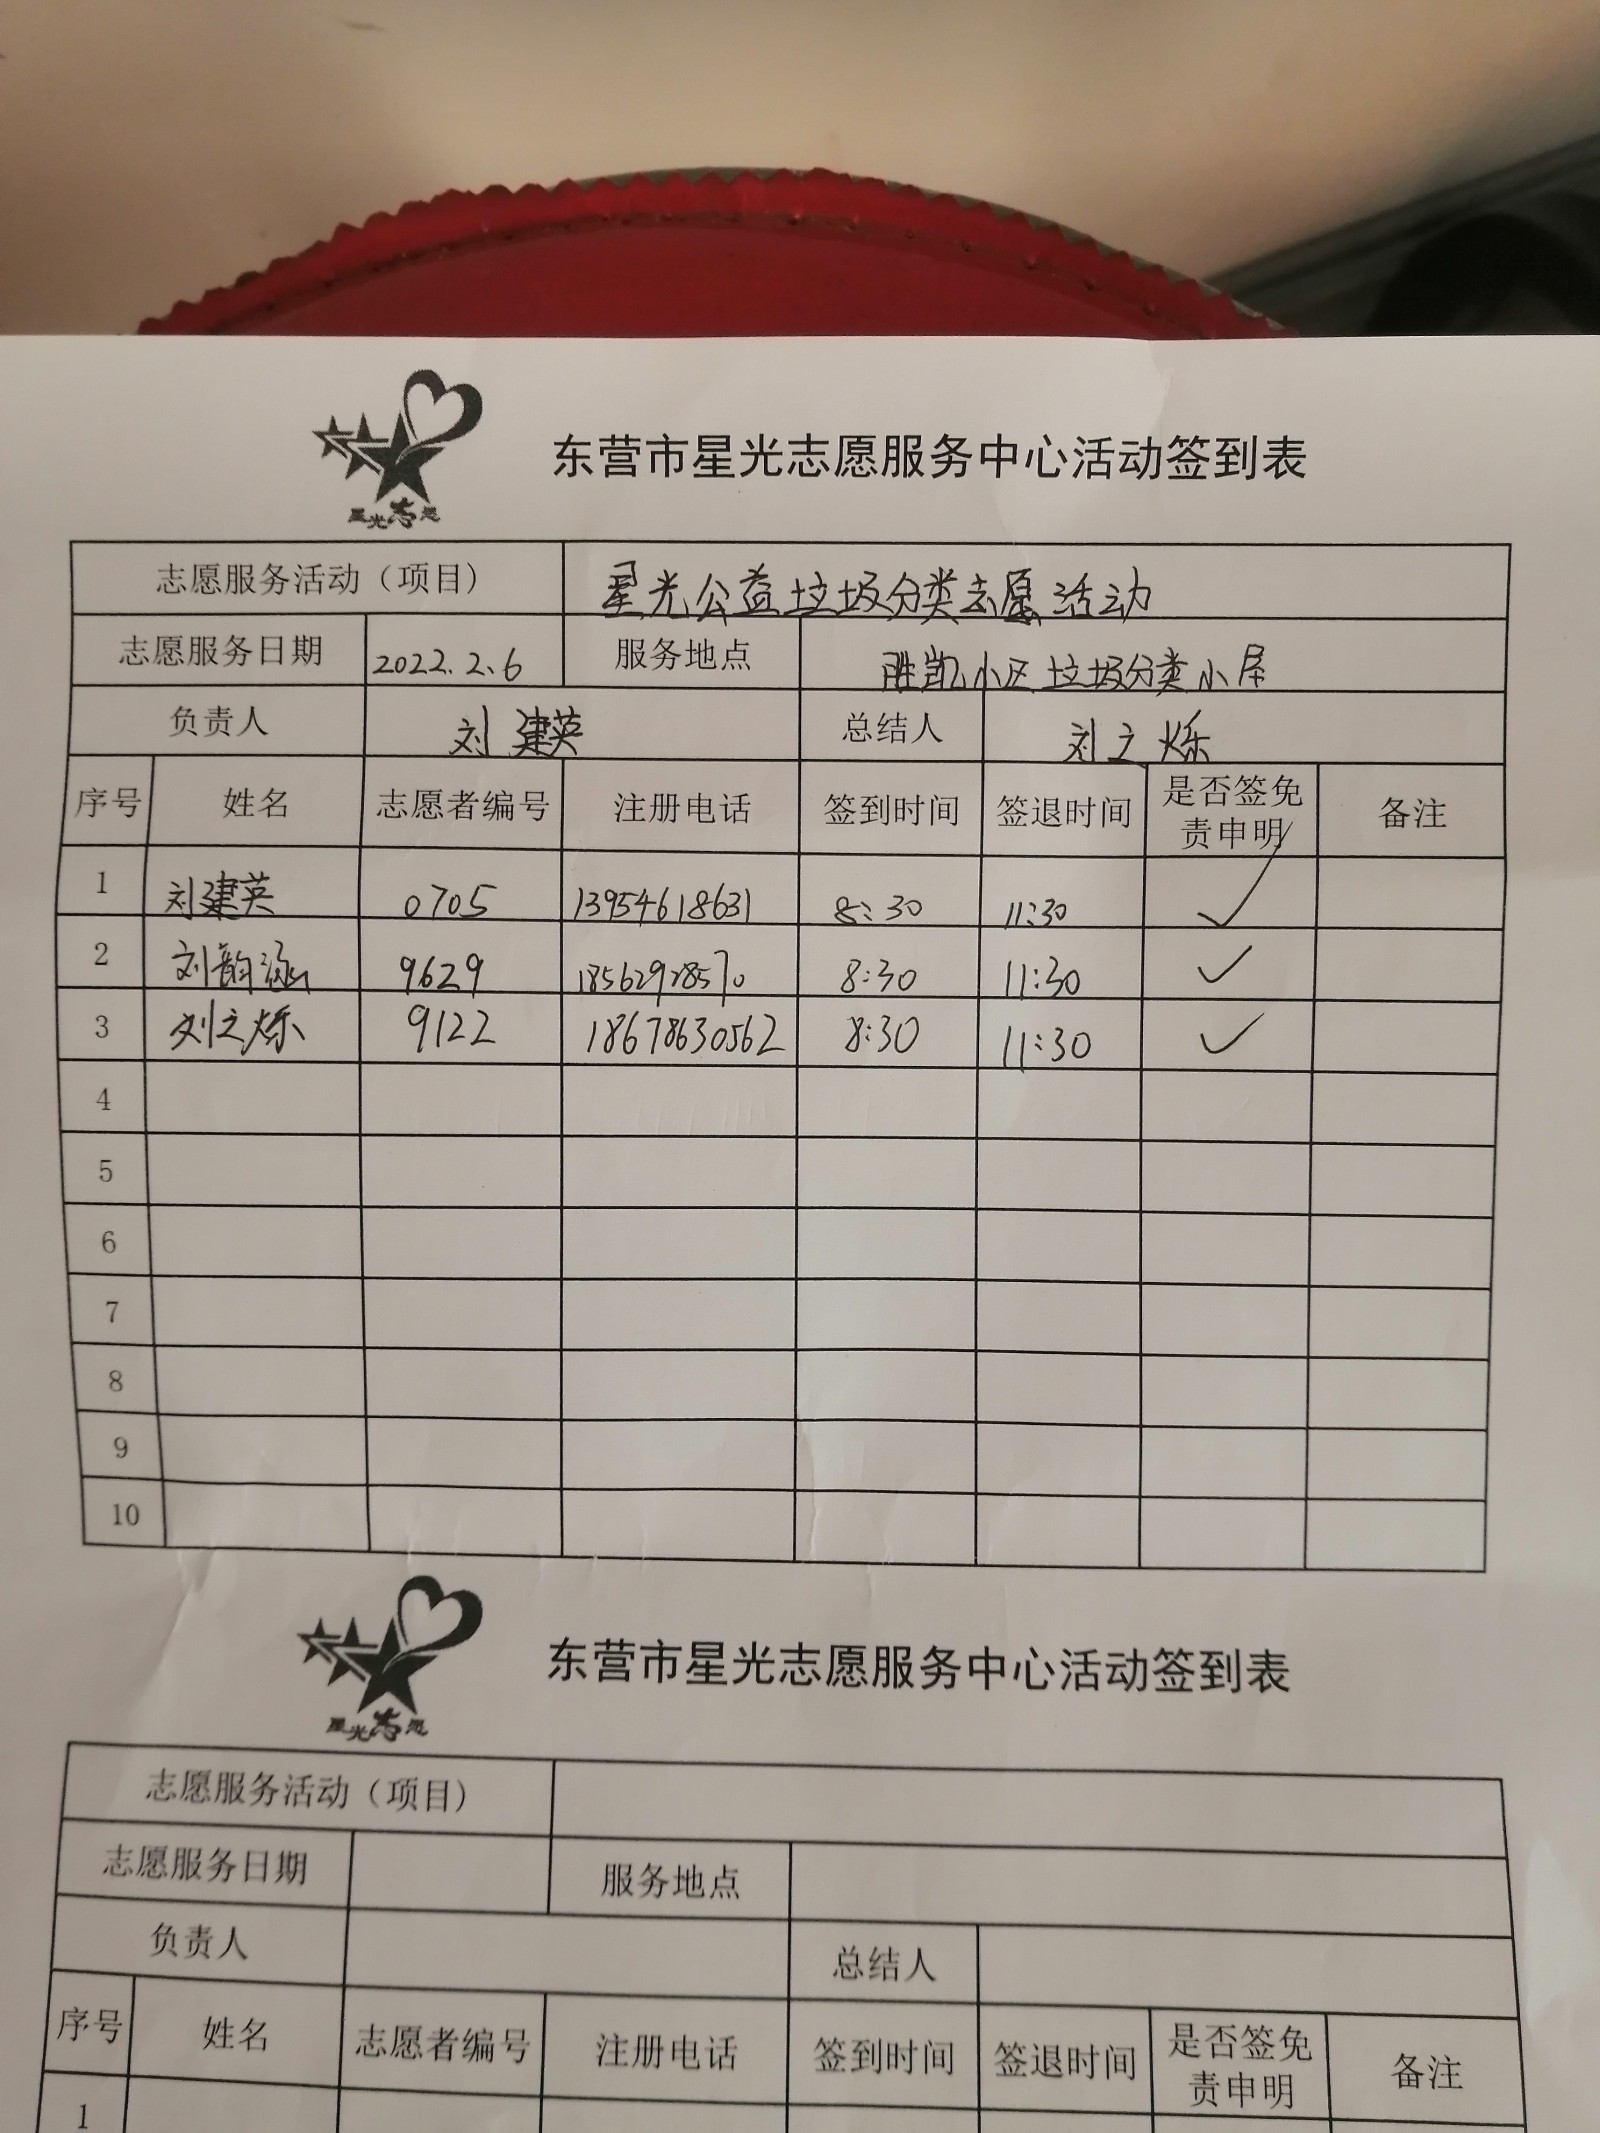 星光志愿
东营市星光志愿服务中心活动签到表
志愿服务活动（项目） 星光公益垃圾分类志愿活动
志愿服务日期 2022.2.6 服务地点 胜凯小区垃圾分类小屋
负责人 刘建英 总结人 刘之烁
序号 姓名 志愿者编号 注册电话 签到时间 签退时间 是否签免责申明 备注
1 刘建英 0705 13954618631 8:30 11:30 ✓
2 刘韵涵 9629 18562928570 8:30 11:30 ✓
3 刘之烁 9122 18678630562 8:30 11:30 ✓
4
5
6
7
8
9
10
星光志愿
东营市星光志愿服务中心活动签到表
志愿服务活动（项目）
志愿服务日期 服务地点
负责人 总结人
序号 姓名 志愿者编号 注册电话 签到时间 签退时间 是否签免责申明 备注
1